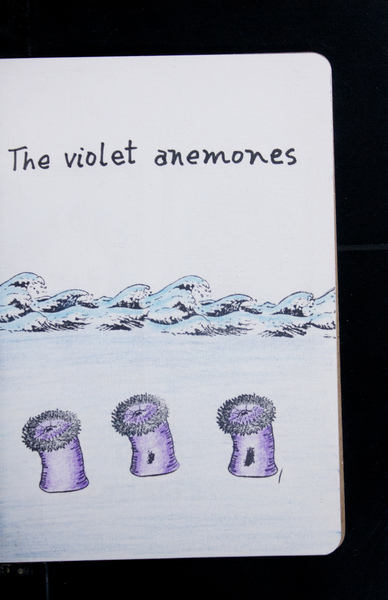 The violet anemones